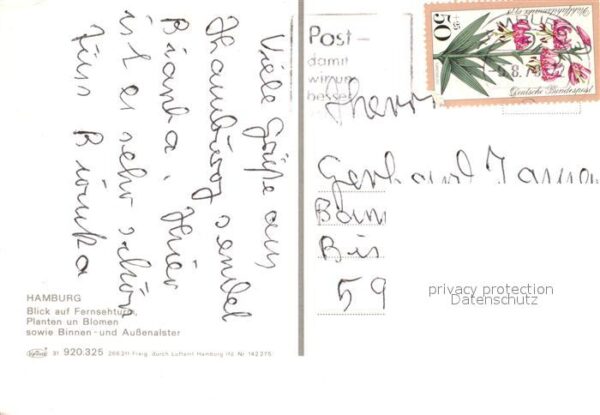 Viele Grüße aus
Hamburg sendet
Bianka. Hier
ist es sehr schön
Tüss Bianka
HAMBURG
Blick auf Fernsehturm,
Planten un Blomen
sowie Binnen- und Außenalster
31 920.325 266211 Freig. durch Luftamt Hamburg lfd. Nr 142 275
Post-
damit
wir un
besser
50
+25
Deutsche Bundespost
Herrn
Gerhard
Bam
Bis
59
privacy protection
Datenschutz